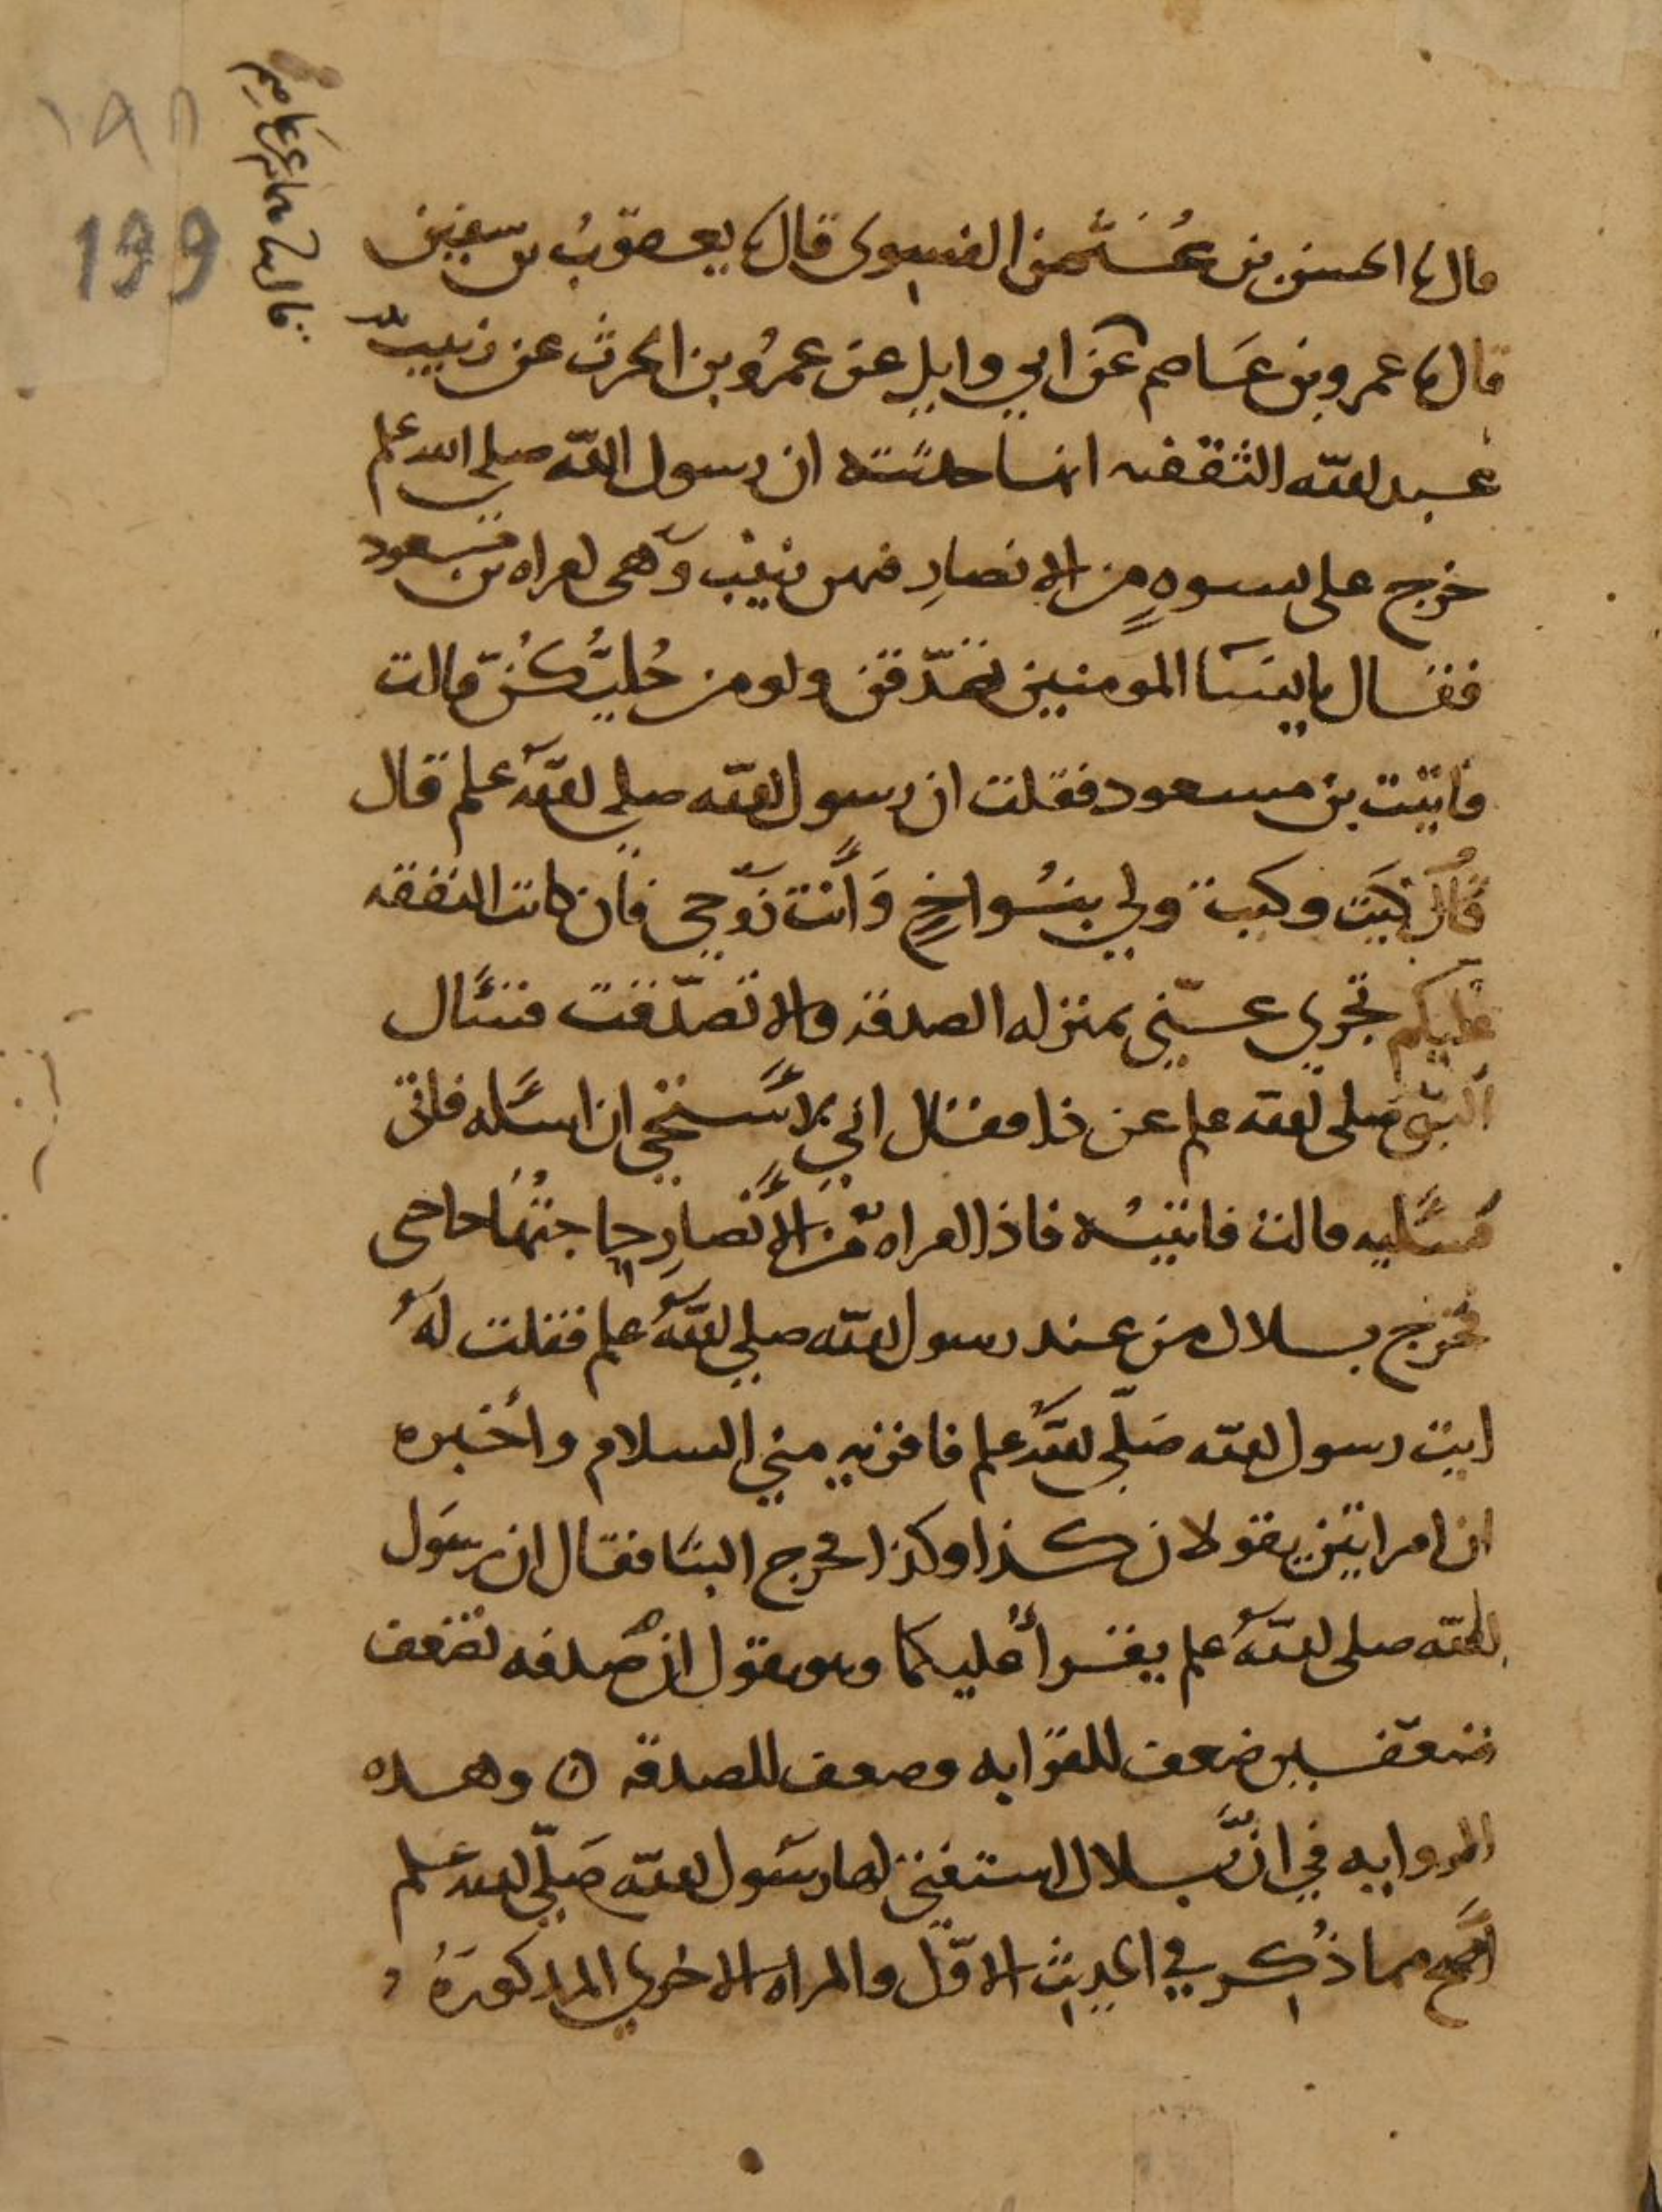 ١٩٨
199
قال نا الحسن بن عثمن الفسوى قال نا يعقوب بن سفين
قال نا عمرو بن عاصم عن ابي وايل عن عمرو بن الحرث عن زينب بنت
عبد الله الثقفيه انها حدثته ان رسول الله صلى الله علم
خرج على نسوه من الانصار فيهن زينب وهي امراه بن مسعود
فقال يا نسا المومنين تصدقن ولو من حُليّكُنّ قالت
فاتيت بن مسعود فقلت ان رسول الله صلى الله علم قال
قال كيت وكيت ولي بنُو اخٍ وَانت زوجي فان كانت النفقه
عليكم تجري عني بمنزله الصدقه والا تصدّقت فتسأل
النبي صلى الله علم عن ذا فقال اني لاستحي ان اسله فاتى
فسليه قالت فاتيته فاذا امراه من الانصارِ حاجتُها حاجتى
فخرج بلال من عند رسول الله صلى الله علم فقلت له
ايت رسول الله صلى الله علم فاقريه مني السلام واخبره
ان امراتين يقولان كذا وكذا فخرج الينا فقال ان رسول
الله صلى الله علم يقرأ عليكما وهو يقول ان صدقه تضعف
ضعفين ضعف للقرابه وضعف للصدقه ن وهذه
الروايه في انّ بلال استفتى لها رسول الله صلّى الله علم
اصح مما ذُكر في الحديث الاوّل والمراه الاخرى المذكورة